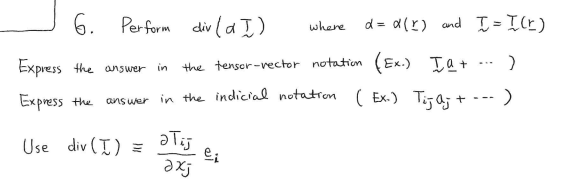 6. Perform div(α T̰) where α = α(r̲) and T̰ = T̰(r̲)
Express the answer in the tensor-vector notation (Ex.) T̰a̲ + ··· )
Express the answer in the indicial notation ( Ex.) Tij aj + ··· )
Use div(T̰) ≡ ∂Tij/∂xj e̲i